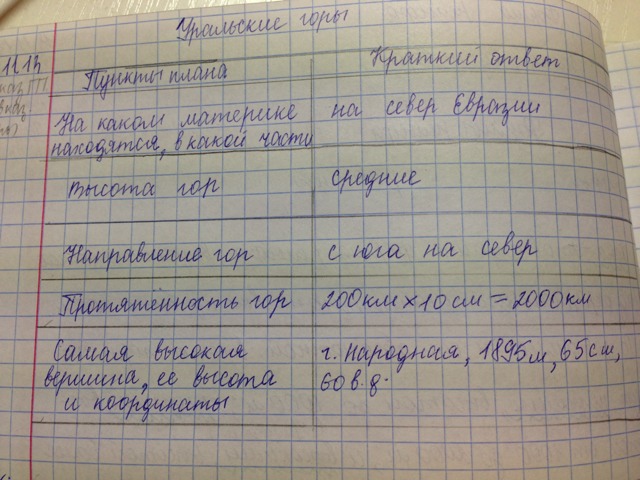 Уральские горы
11.13
Пункты плана
Краткий ответ
На каком материке
находятся, в какой части
на север Евразии
Высота гор
средние
Направление гор
с юга на север
Протятённость гор
200км × 10 см = 2000км
Самая высокая
вершина, её высота
и координаты
г. Народная, 1895м, 65 сш,
60 в.д.